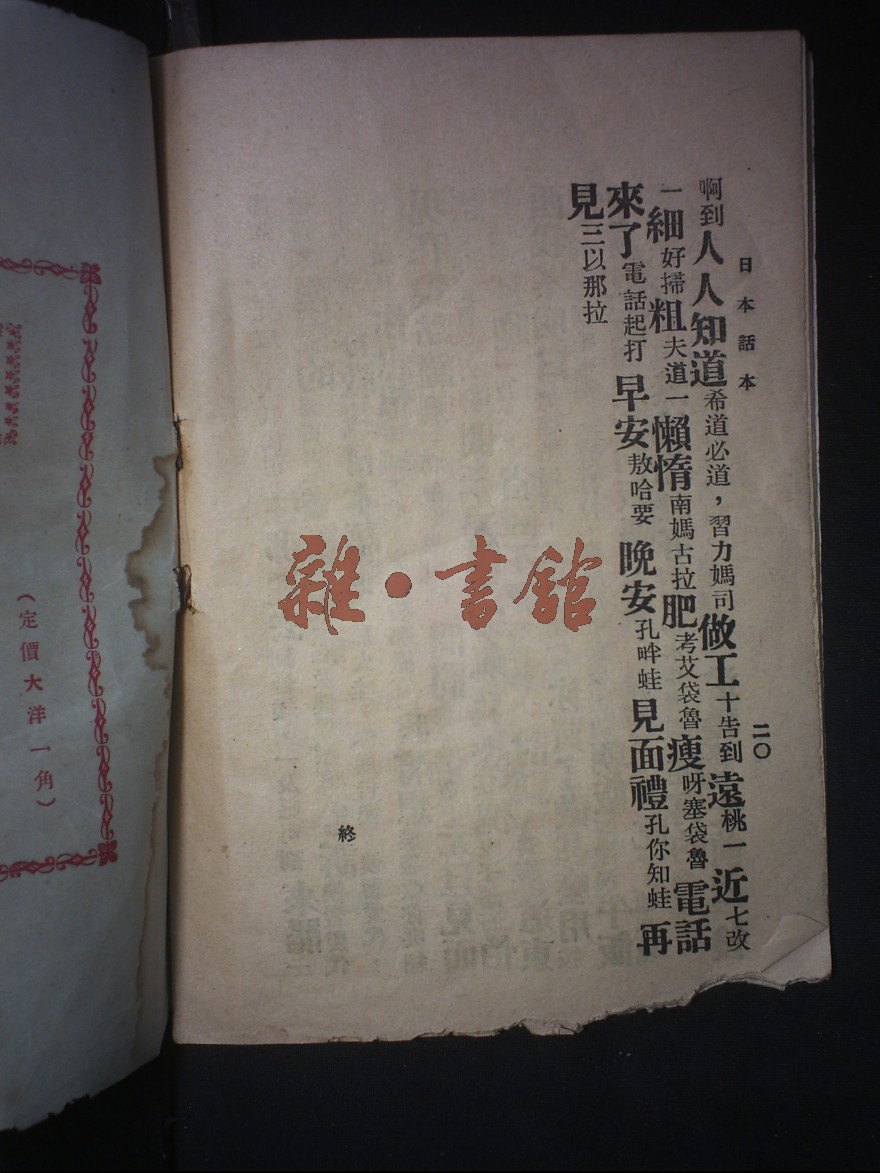 日本話本
二〇
啊到人人知道希道必道，習力媽司做工十告到遠桃一近七改
一細好掃粗夫道一懶惰南媽古拉肥考艾袋魯瘦呀塞袋魯電話
來了電話起打早安敖哈要晚安孔吽蛙見面禮孔你知蛙再
見三以那拉
終
雜·書館
（定價大洋一角）